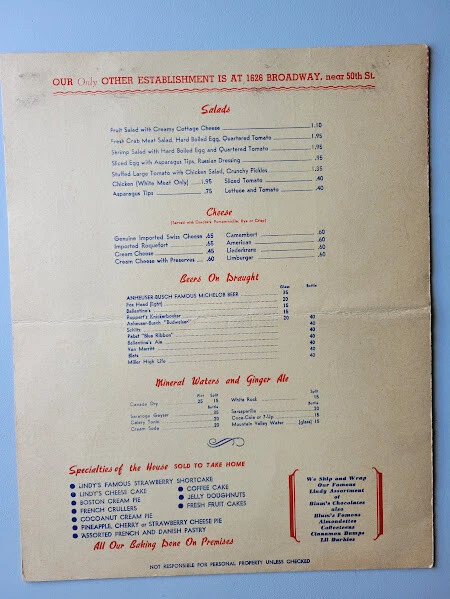 OUR Only OTHER ESTABLISHMENT IS AT 1626 BROADWAY, near 50th St.
Salads
Fruit Salad with Creamy Cottage Cheese 1.10
Fresh Crab Meat Salad, Hard Boiled Egg, Quartered Tomato 1.95
Shrimp Salad with Hard Boiled Egg and Quartered Tomato 1.95
Sliced Egg with Asparagus Tips, Russian Dressing .95
Stuffed Large Tomato with Chicken Salad, Crunchy Pickles 1.35
Chicken (White Meat Only) 1.95 Sliced Tomato .40
Asparagus Tips .75 Lettuce and Tomato .40
Cheese
(Served with Crackers, Pumpernickle, Rye or Crisp)
Genuine Imported Swiss Cheese .65 Camembert .60
Imported Roquefort .65 American .60
Cream Cheese .45 Liederkranz .60
Cream Cheese with Preserves .60 Limburger .60
Beers On Draught
Glass Bottle
ANHEUSER-BUSCH FAMOUS MICHELOB BEER 25
Fox Head (light) 20
Ballantine's 15
Ruppert's Knickerbocker 15
Anheuser-Busch "Budweiser" 20 40
Schlitz 40
Pabst "Blue Ribbon" 40
Ballantine's Ale 40
Van Merritt 40
Blatz 40
Miller High Life 40
Mineral Waters and Ginger Ale
Pint Split Split
Canada Dry 25 15 White Rock 15
Bottle Bottle
Saratoga Geyser 25 Sarsaparilla 20
Celery Tonic 20 Coca-Cola or 7-Up 15
Cream Soda 20 Mountain Valley Water (glass) 15
Specialties of the House SOLD TO TAKE HOME
LINDY'S FAMOUS STRAWBERRY SHORTCAKE
LINDY'S CHEESE CAKE COFFEE CAKE
BOSTON CREAM PIE JELLY DOUGHNUTS
FRENCH CRULLERS FRESH FRUIT CAKES
COCOANUT CREAM PIE
PINEAPPLE, CHERRY or STRAWBERRY CHEESE PIE
ASSORTED FRENCH AND DANISH PASTRY
All Our Baking Done On Premises
We Ship and Wrap
Our Famous
Lindy Assortment
of
Blum's Chocolates
also
Blum's Famous
Almondettes
Coffeetons
Cinnamon Bumps
Lil Duchies
NOT RESPONSIBLE FOR PERSONAL PROPERTY UNLESS CHECKED